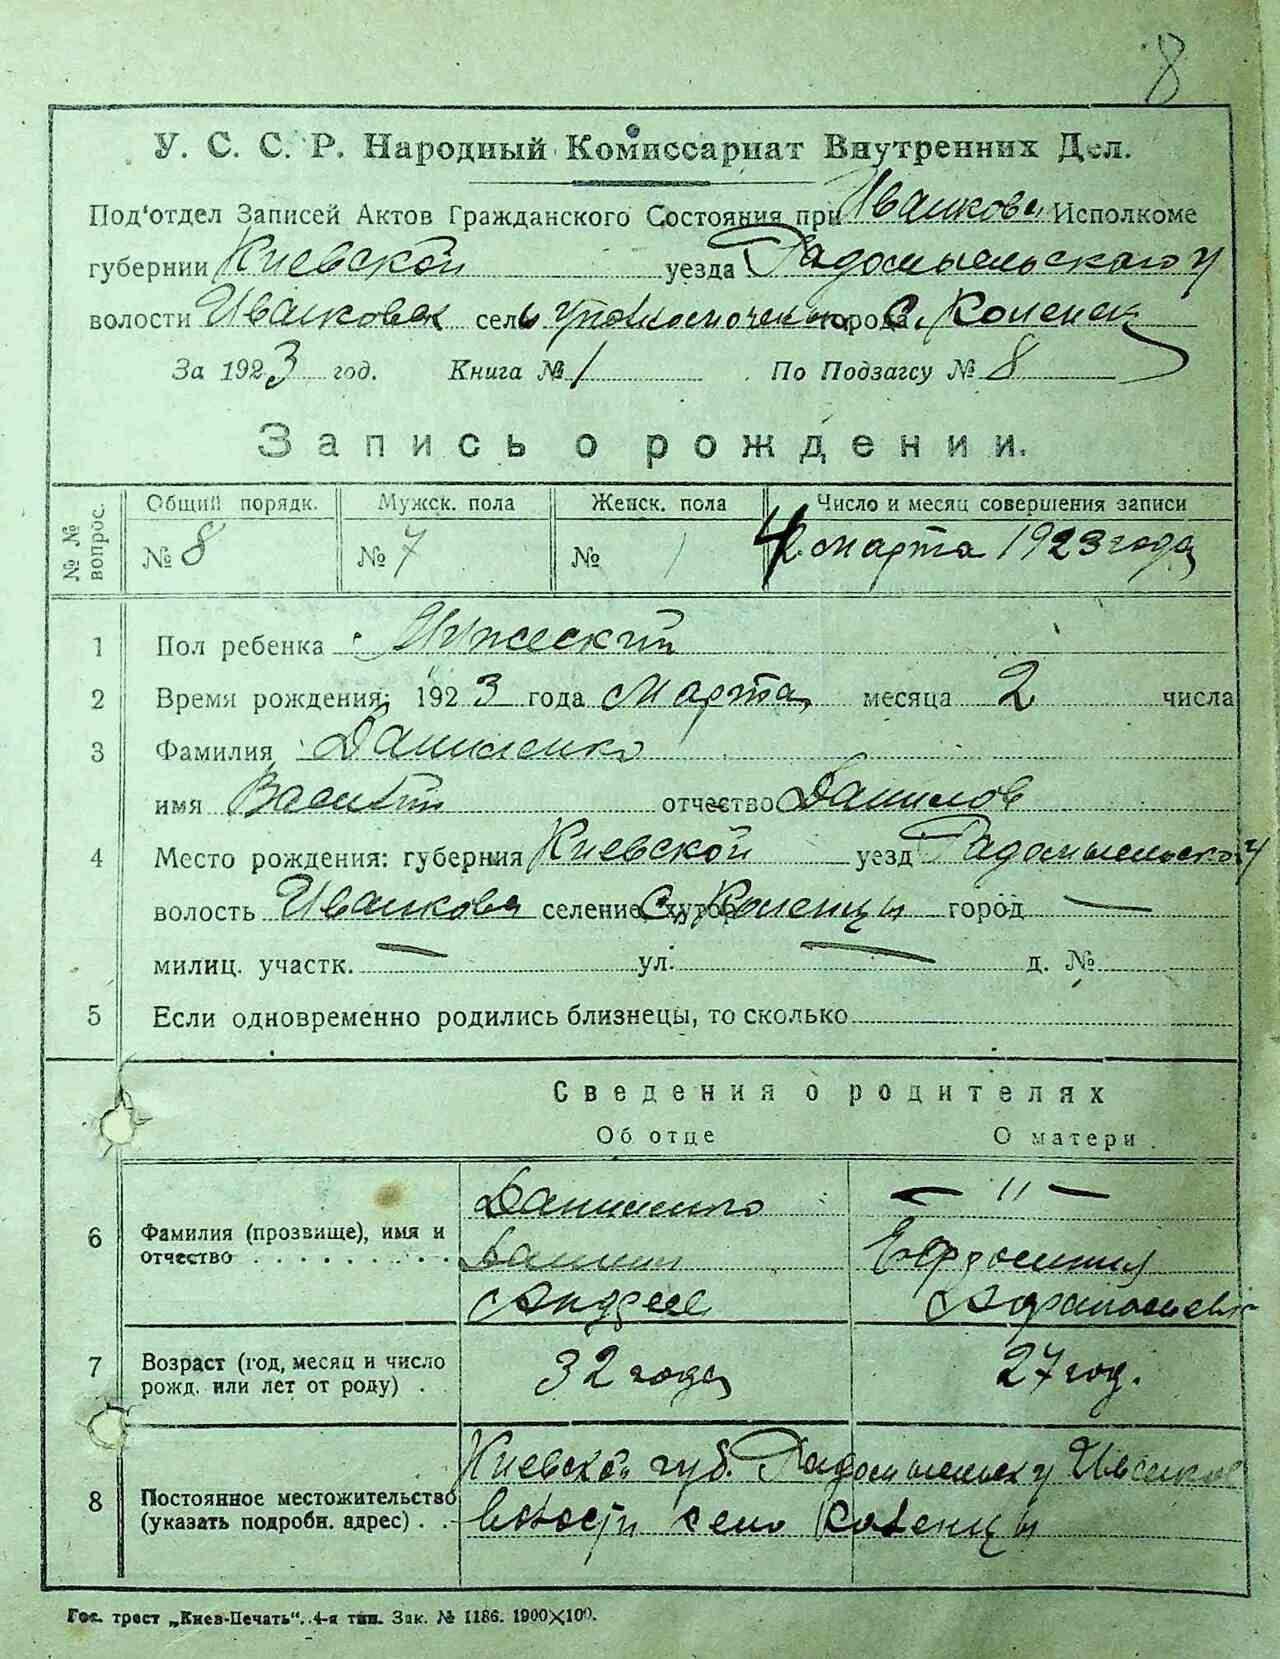 8
У. С. С. Р. Народный Комиссариат Внутренних Дел.
Под‘отдел Записей Актов Гражданского Состояния при Иванков. Исполкоме
губернии Киевской уезда Радомысльского у
волости Иванковск село уполномочен города с. Коленцы
За 1923 год. Книга № 1 По Подзагсу № 8
Запись о рождении.
№ № вопрос. Общий порядк. Мужск. пола Женск. пола Число и месяц совершения записи
№ 8 № 7 № марта 1923 года
1 Пол ребенка Мужеский
2 Время рождения; 1923 года Марта месяца 2 числа
3 Фамилия Даниленко
имя Василий отчество Данилов
4 Место рождения: губерния Киевской уезд Радомысльског у
волость Иванкова селение, хутор с. Коленцы город —
милиц. участк. — ул. — д. №
5 Если одновременно родились близнецы, то сколько
Сведения о родителях
Об отце О матери
6 Фамилия (прозвище), имя и отчество Даниленко — " —
Данил Ефросиния
Андрее Афанасьев
7 Возраст (год, месяц и число рожд. или лет от роду) . 32 года 27 год.
8 Постоянное местожительство (указать подробн. адрес) . . Киевской губ. Радомысльск у Иванков
волости село Коленцы
Гос. трест „Киев-Печать“. 4-я тип. Зак. № 1186. 1900×100.